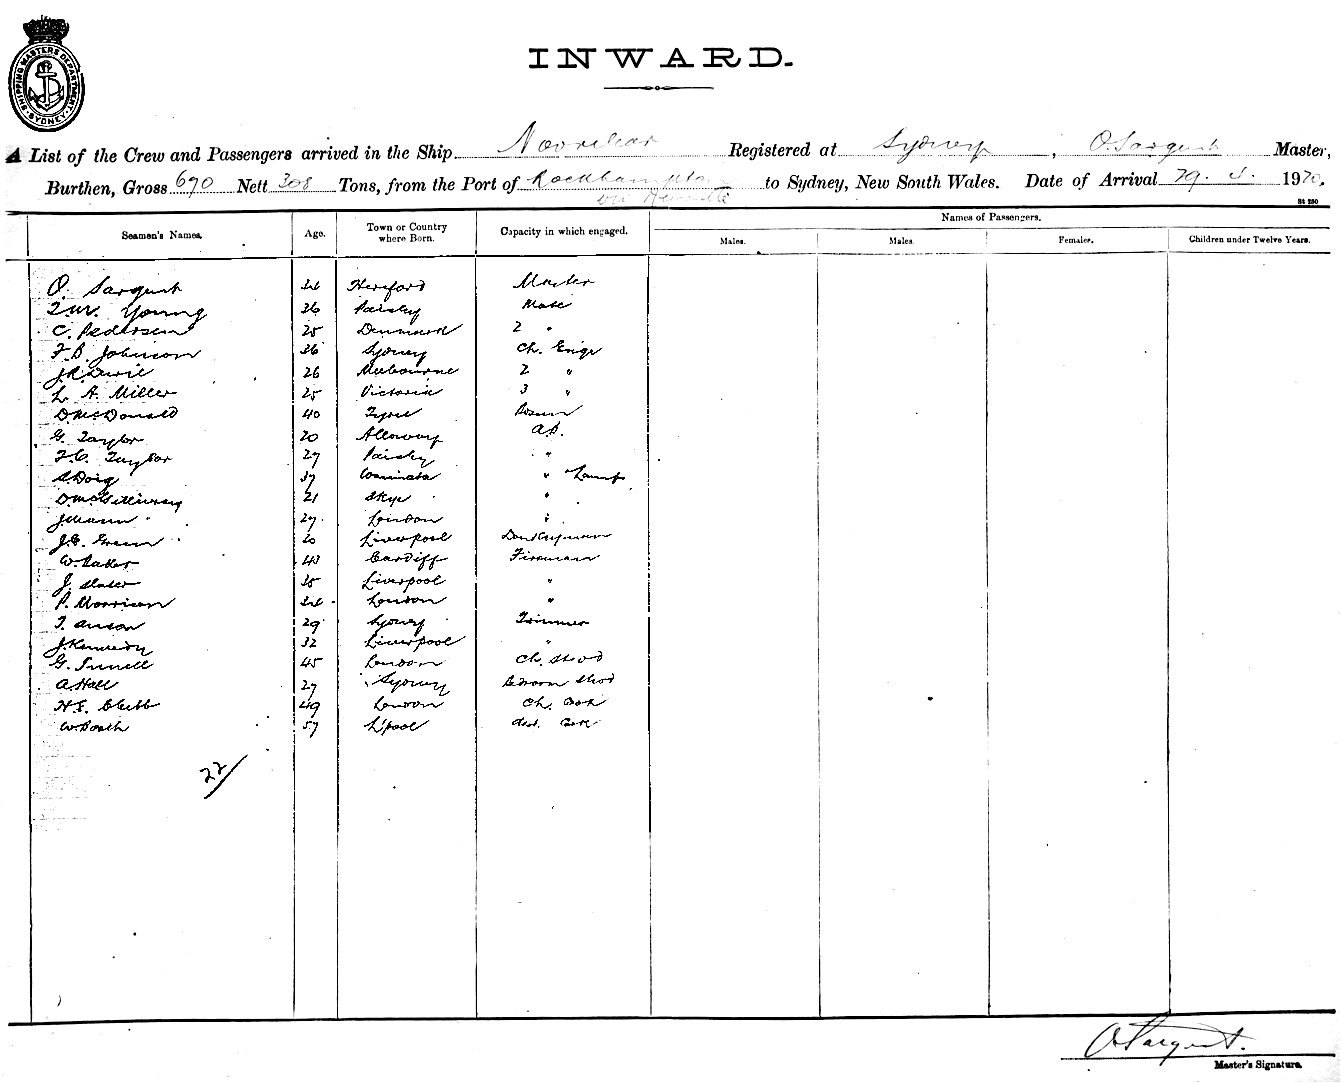 SHIPPING MASTERS DEPARTMENT SYDNEY
INWARD.
A List of the Crew and Passengers arrived in the Ship Registered at Sydney, O. Sargent Master,
Burthen, Gross 690 Nett 308 Tons, from the Port of Rockhampton to Sydney, New South Wales. Date of Arrival 19
via
St 250
Seamen's Names. Age. Town or Country where Born. Capacity in which engaged. Names of Passengers.
Males. Males. Females. Children under Twelve Years.
O. Sargent Hereford Master
Young 36 Paisley Mate
C. Pedersen 25 Denmark 2 "
F. B. Johnson 36 Sydney Ch. Engr
26 Melbourne 2 "
L. A. Miller 25 Victoria 3 "
D. McDonald 40 Tyree
G. Taylor 20 Alloway A.B.
F. C. Taylor 27 Paisley "
S. Doig 37 "
D. McGillivray 21 Skye "
J. Mann 27 London "
J. G. Green 20 Liverpool Donkeyman
W. Baker 43 Cardiff Fireman
J. Slater Liverpool "
P. Morrison London "
T. Anson 29 Sydney Trimmer
J. Kennedy 32 Liverpool "
G. 45 London Ch. Stwd
A. Hall 27 Sydney Bedroom Stwd
H. E. Clubb 49 London Ch. Cook
W. Booth 57 L'pool Asst. Cook
22/
O. Sargent.
Master's Signature.